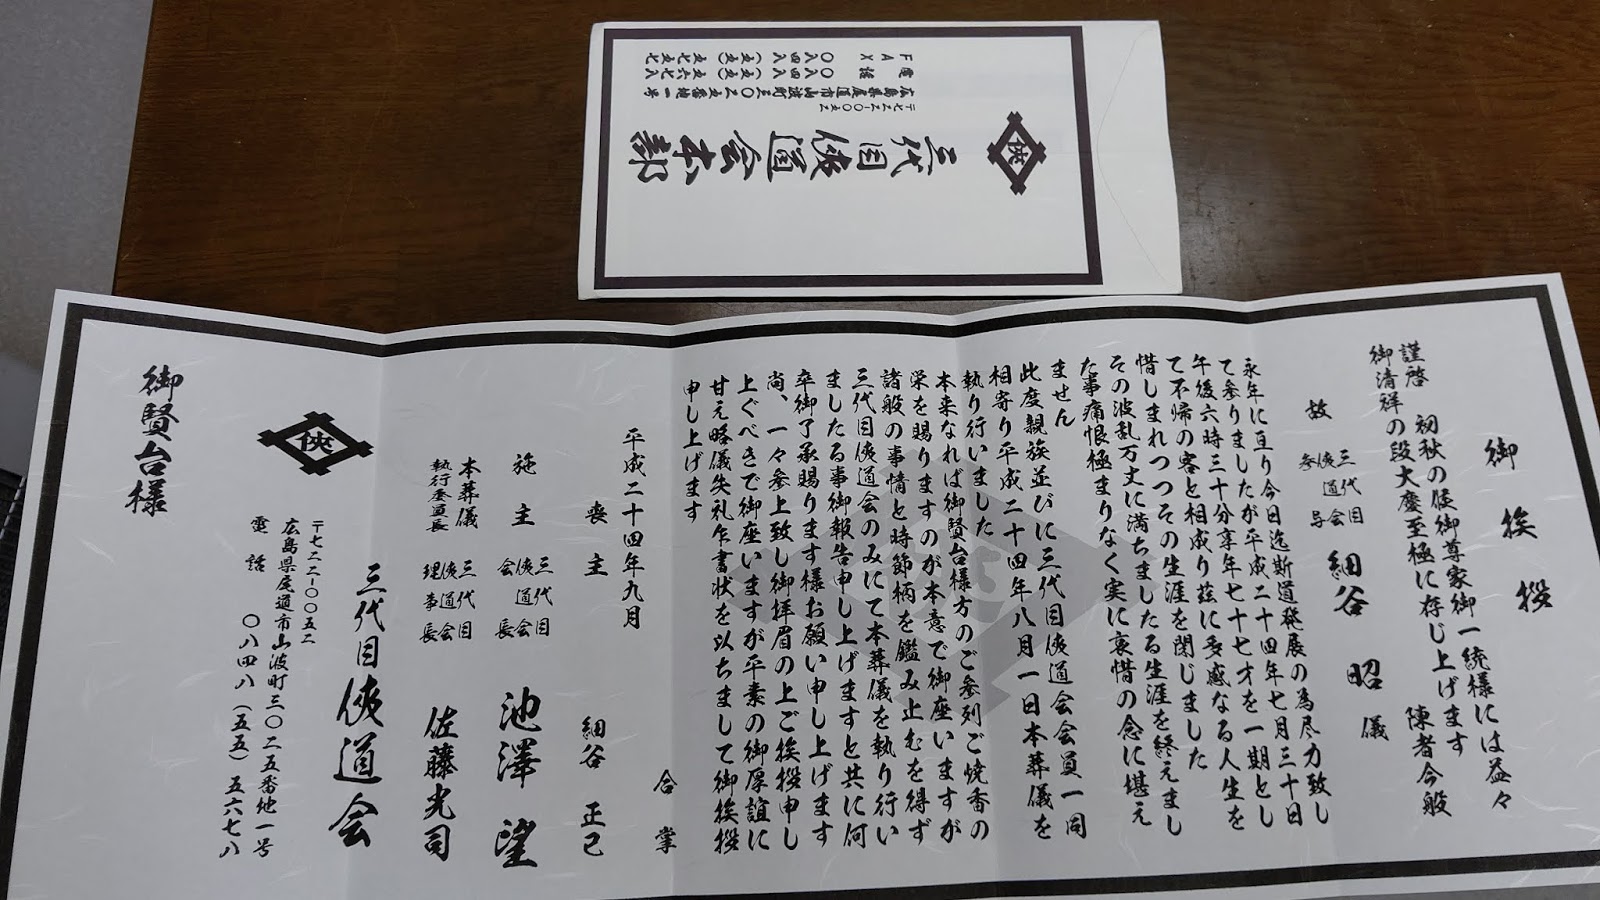 御挨拶
謹啓 初秋の候御尊家御一統様には益々
御清祥の段大慶至極に存じ上げます 陳者今般
故 三代目侠道会参与 細谷昭儀
永年に亘り今日迄斯道発展の為尽力致し
て参りましたが平成二十四年七月三十日
午後六時三十分享年七十七才を一期とし
て不帰の客と相成り茲に多感なる人生を
惜しまれつつその生涯を閉じました
その波乱万丈に満ちましたる生涯を終えまし
た事痛恨極まりなく実に哀惜の念に堪え
ません
此度親族並びに三代目侠道会会員一同
相寄り平成二十四年八月一日本葬儀を
執り行いました
本来なれば御賢台様方のご参列ご焼香の
栄を賜りますのが本意で御座いますが
諸般の事情と時節柄を鑑み止むを得ず
三代目侠道会のみにて本葬儀を執り行い
ましたる事御報告申し上げますと共に何
卒御了承賜ります様お願い申し上げます
尚、一々参上致し御拝眉の上ご挨拶申し
上ぐべきで御座いますが平素の御厚誼に
甘え略儀失礼乍書状を以ちまして御挨拶
申し上げます
合掌
平成二十四年九月
喪主 細谷正己
施主 三代目侠道会会長 池澤望
本葬儀執行委員長 三代目侠道会理事長 佐藤光司
三代目侠道会
〒七二二-〇〇五二
広島県尾道市山波町三〇二五番地一号
電話 〇八四八(五五)五六七八
侠
御賢台様
侠
三代目侠道会本部
〒七二二-〇〇五二
広島県尾道市山波町三〇二五番地一号
電話 〇八四八(五五)五六七八
FAX 〇八四八(五五)五七五七